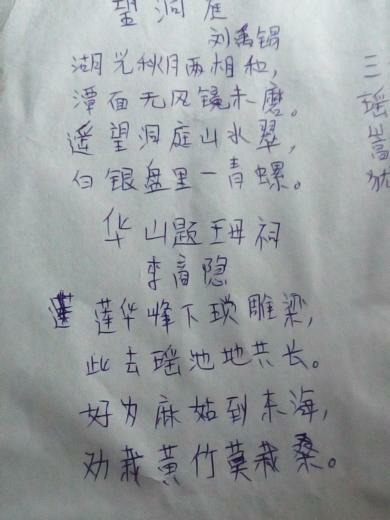 望洞庭
刘禹锡
湖光秋月两相和,
潭面无风镜未磨。
遥望洞庭山水翠,
白银盘里一青螺。
华山题王母祠
李商隐
莲华峰下琐雕梁,
此去瑶池地共长。
好为麻姑到东海,
劝栽黄竹莫栽桑。
三
瑶
嵩